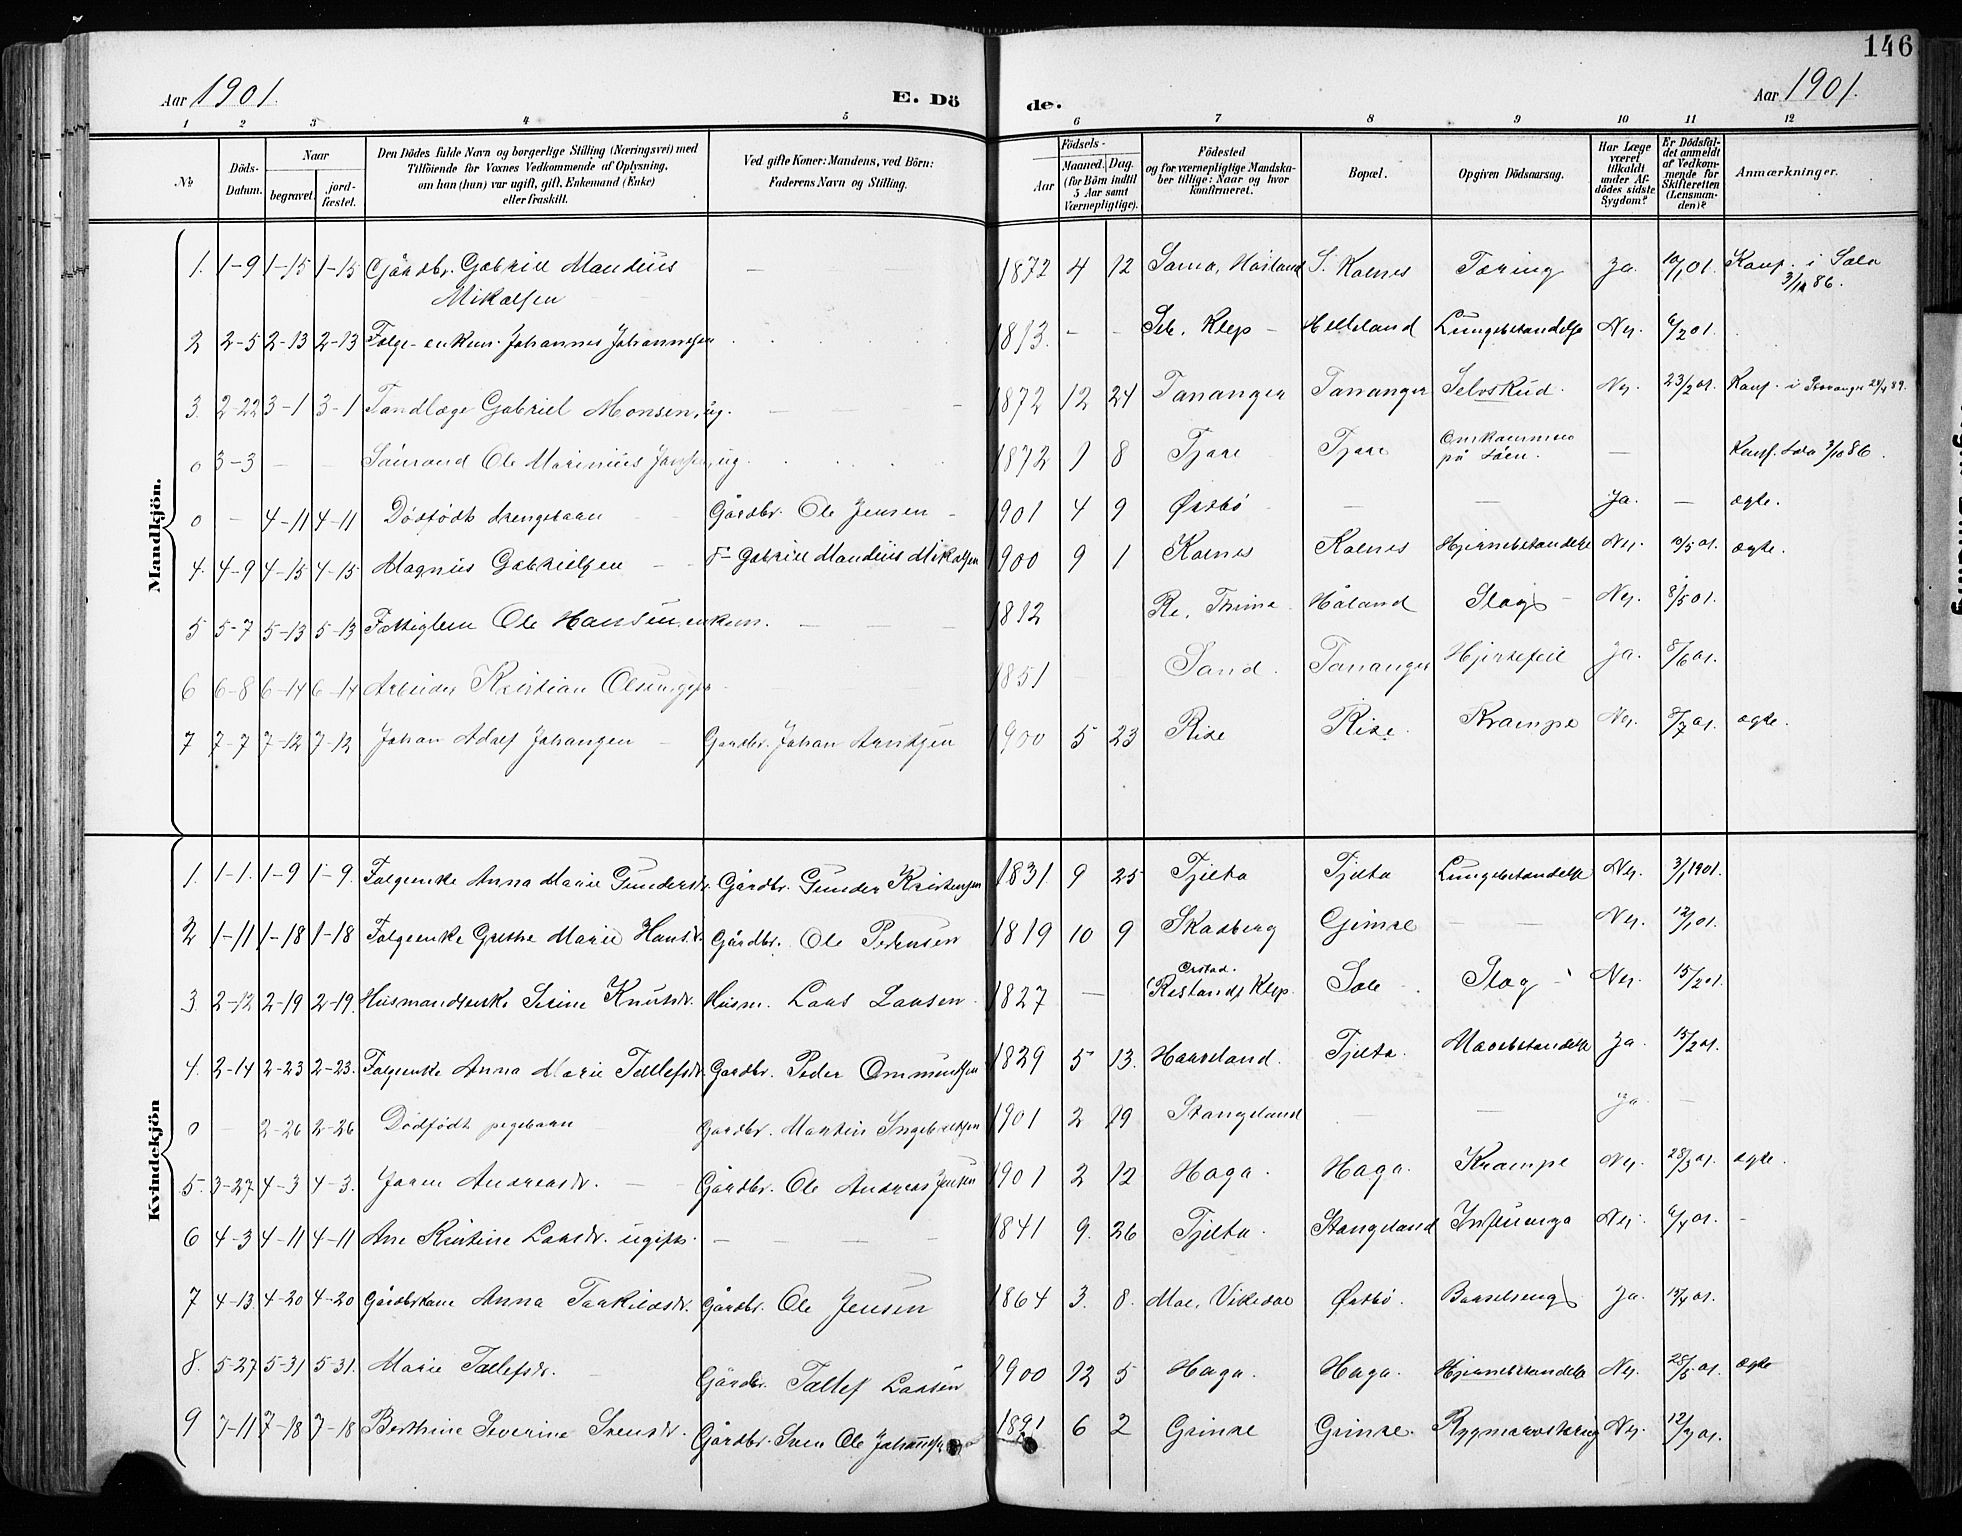 146
Aar 1901. E. Dö de. Aar 1901.
1 2 3 4 5 6 7 8 9 10 11 12
No. Döds-Datum. Naar begravet. jord-fæstet. Den Dödes fulde Navn og borgerlige Stilling (Næringsvei) med Tilföiende for Voxnes Vedkommende af Oplysning, om han (hun) var ugift, gift, Enkemand (Enke) eller fraskilt. Ved gifte Koner: Mandens, ved Börn: Faderens Navn og Stilling. Födsels- Aar Maaned. Dag. (for Börn indtil 5 Aar samt Værnepligtige). Födested og for værnepligtige Mandskaber tillige: Naar og hvor konfirmeret. Bopæl. Opgiven Dödsaarsag. Har Læge været tilkaldt under Afdödes sidste Sygdom? Er Dödsfaldet anmeldt af Vedkommende for Skifteretten (Lensmanden)? Anmærkninger.
Mandkjön.
1. 1-9 1-15 1-15 Gårdbr. Gabriel Mandius Mikalsen — — 1872 4 12 Soma, Höiland S. Kolnes Tæring Ja. 10/1 01. Konf. i Sola 3/10 86.
2 2-5 2-13 2-13 Folge-enkem. Johannes Johannesen 1813. - - Sele, Klep Helleland Lungebetændelse Nei. 6/2 01.
3. 2-22 3-1 3-1 Tandlæge Gabriel Monsen, ug. — 1872 12 24 Tananger Tananger Selvskud. Nei. 23/2 01. Konf. i Stavanger 89.
0 3-3 — — Sömand Ole Marinius Jansen, ug. 1872 1 8 Tjora Tjora Omkommen på söen. — Konf. Sola 3/10 86.
0 — 4-11 4-11 Dödfödt drengebarn Gårdbr. Ole Jensen 1901 4 9 Østbö — — Ja. — ægte.
4. 4-9 4-15 4-15 Magnus Gabrielsen — Gabriel Mandius Mikalsen 1900 9 1 Kolnes Kolnes Hjernebetændelse Nei. 10/5 01. ægte.
5 5-7 5-13 5-13 Fattiglem Ole Hansen, enkem. — — — 1812 Re, Thime Håland Slag Nei. 8/5 01.
6 6-8 6-14 6-14 Arbeider Kristian Olsen, gift 1851 Sand. Tananger Hjertefeil Ja. 8/6 01.
7 7-7 7-12 7-12 Johan Adolf Johansen — Gårdbr. Johan Arntsen 1900 5 23 Risa Risa. Krampe Nei. 01. ægte.
Kvindekjön
1. 1-1. 1-9 1-9. Folgeenke Anna Marie Gundersdr. Gårdbr. Gunder Kristensen 1831 9 25 Tjelta Tjelta Lungebetændelse Nei. 3/1 1901.
2 1-11 1-18 1-18 Folgeenke Grethe Marie Hansdr. Gårdbr. Ole Pedersen 1819 10 9 Skadberg Gimre — — Nei. 12/1 01.
3. 2-12 2-19 2-19. Husmandsenke Serine Knutsdr. Husm. Lars Larsen 1827 — Orstad. Klep. Sole Slag Nei. 15/2 01.
4. 2-14 2-23 2-23. Folgeenke Anna Marie Tollefsdr. Gårdbr. Peder Ommundsen 1829 5 13. Haarland. Tjelta. Mavebetændelse Ja. 15/2 01.
0 — 2-26 2-26 Dödfödt pigebarn Gårdbr. Martin Ingebretsen 1901 2 19 Stangeland — — Ja. —
5. 3-27 4-3 4-3. Joren Andreasdr. — Gårdbr. Ole Andreas Jensen 1901 2 12 Haga. Haga. Krampe Nei. 28/3 01. ægte.
6 4-3 4-11 4-11 Ane Kristine Larsdr. ugift. — — — 1841 9. 26 Tjelta. Stangeland Influenza Nei. 6/4 01. -
7 4-13 4-20 4-20 Gårdbrkone Anna Torkildsdr. Gårdbr. Ole Jensen 1864 3. 8. Moe, Vikedal Østbö. Barselseng Ja. 15/4 01.
8. 5-27 5-31 5-31. Marie Tollefsdr. Gårdbr. Tollef Larsen 1900 12 5 Haga. Haga. Hjernebetændelse Nei. 28/5 01. ægte
9 7-11 7-18 7-18 Berthine Severine Svensdr. Gårdbr. Sven Ole Johannesen 1891 6 2 Grimre Gimre. Nei. 12/7 01.